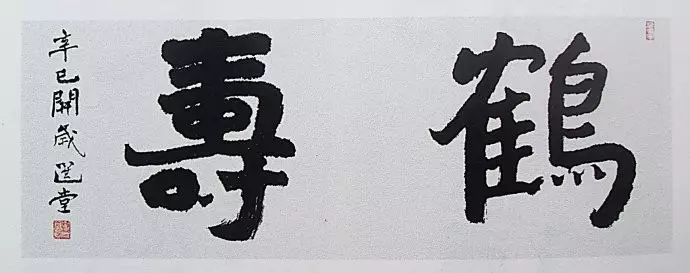 鶴壽
辛巳開歲選堂